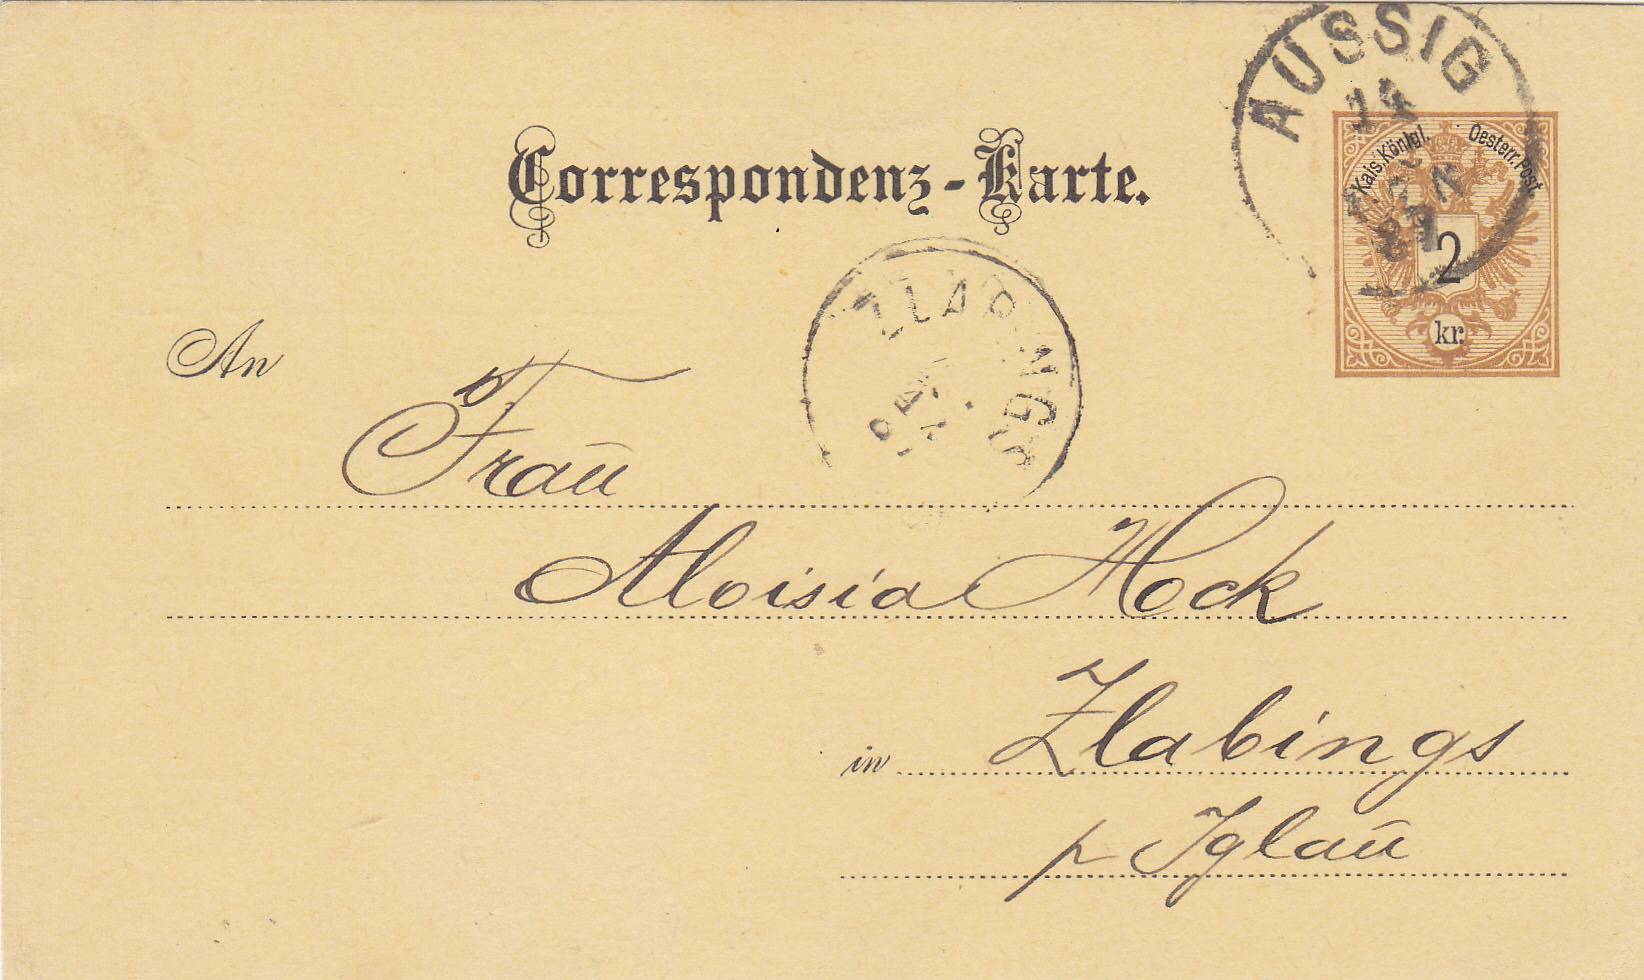 AUSSIG
14
87
Kais. Königl. Oesterr. Post
2
kr.
Correspondenz-Karte.
ZLABINGS
An
Frau
Aloisia Hock
in Zlabings
p Iglau